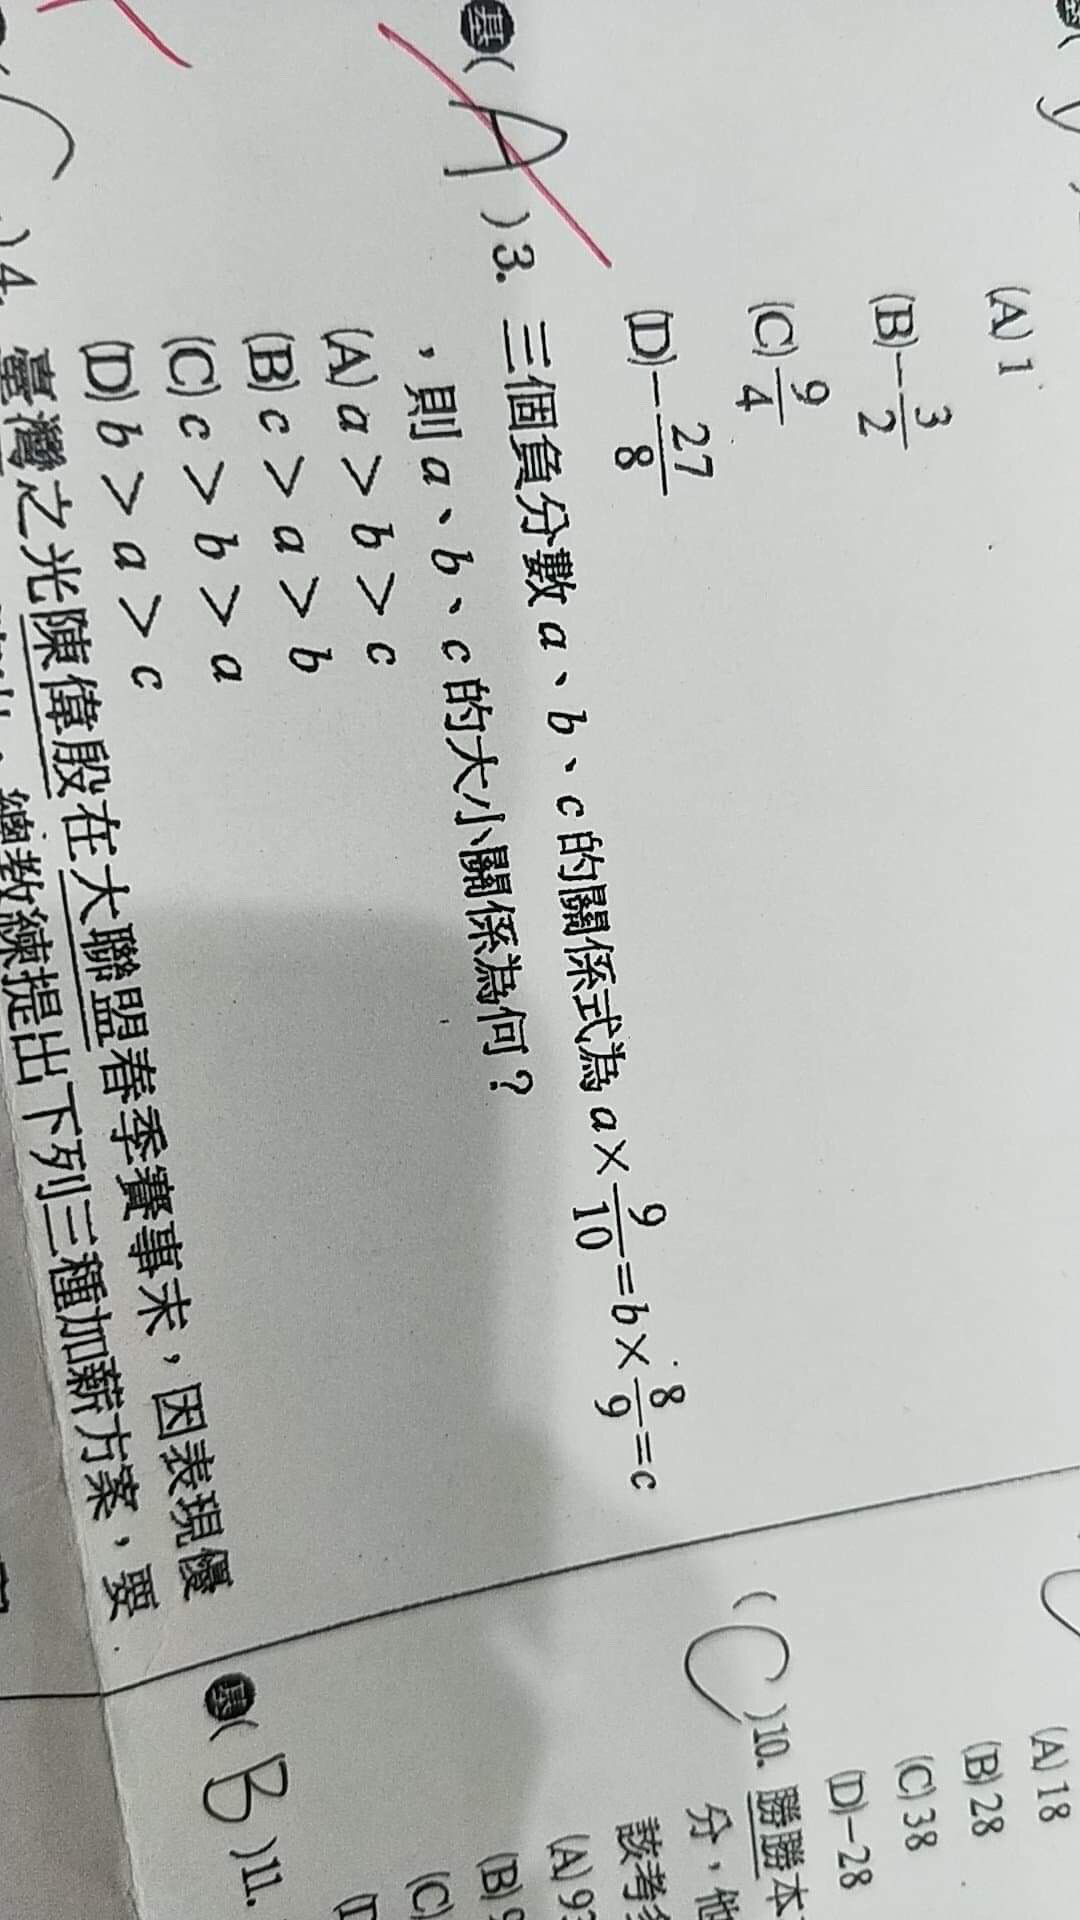 (A) 1
(B) -3/2
(C) 9/4
(D) -27/8
基( A )3. 三個負分數 a、b、c 的關係式為 a×9/10=b×8/9=c
，則 a、b、c 的大小關係為何？
(A) a＞b＞c
(B) c＞a＞b
(C) c＞b＞a
(D) b＞a＞c
)4. 臺灣之光陳偉殷在大聯盟春季賽事末，因表現優
總教練提出下列三種加薪方案，要
(A) 18
(B) 28
(C) 38
(D) -28
( C )10. 勝勝本
分，他
該考
(A) 93
(B) 9
(C)
基( B )11.